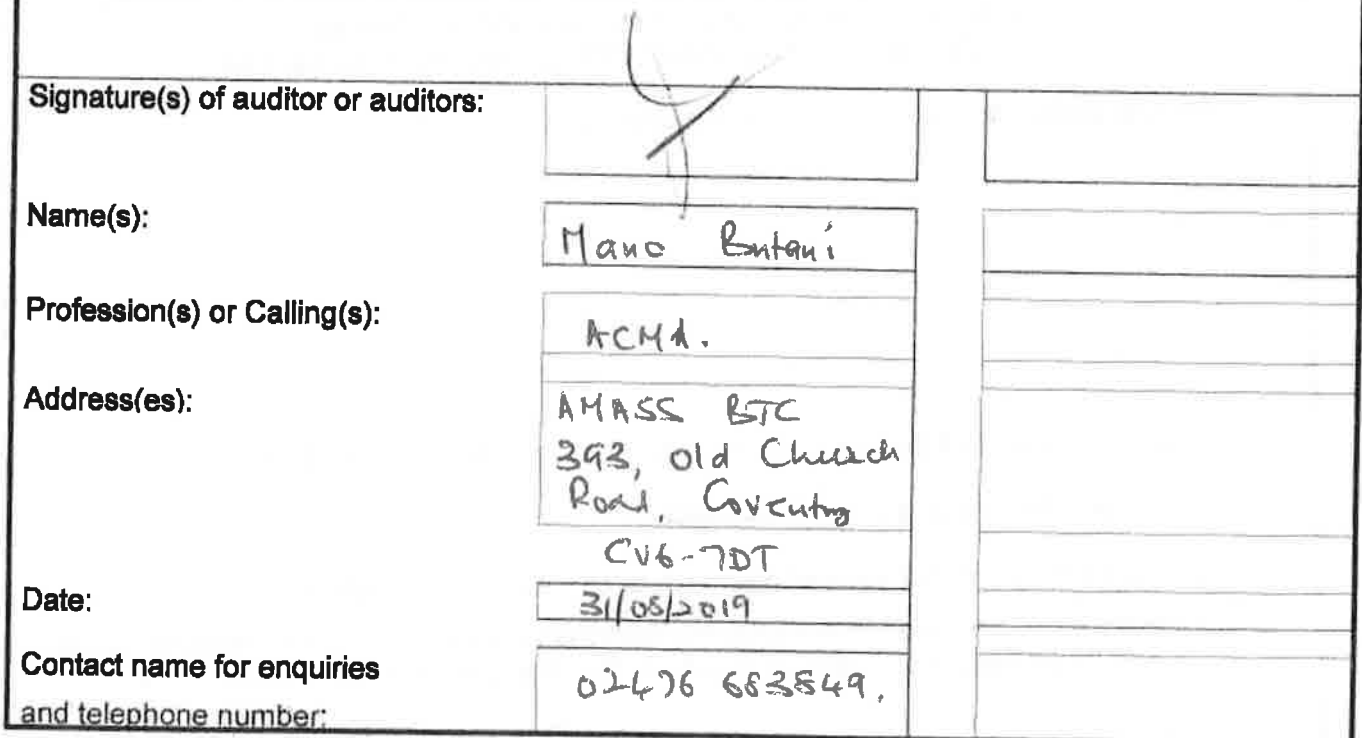 Signature(s) of auditor or auditors:
Name(s):
Mano Butani
Profession(s) or Calling(s):
ACMA.
Address(es):
AMASS BTC
393, Old Church
Road, Coventry
CV6-7DT
Date:
31/05/2019
Contact name for enquiries
and telephone number:
02476 683849.